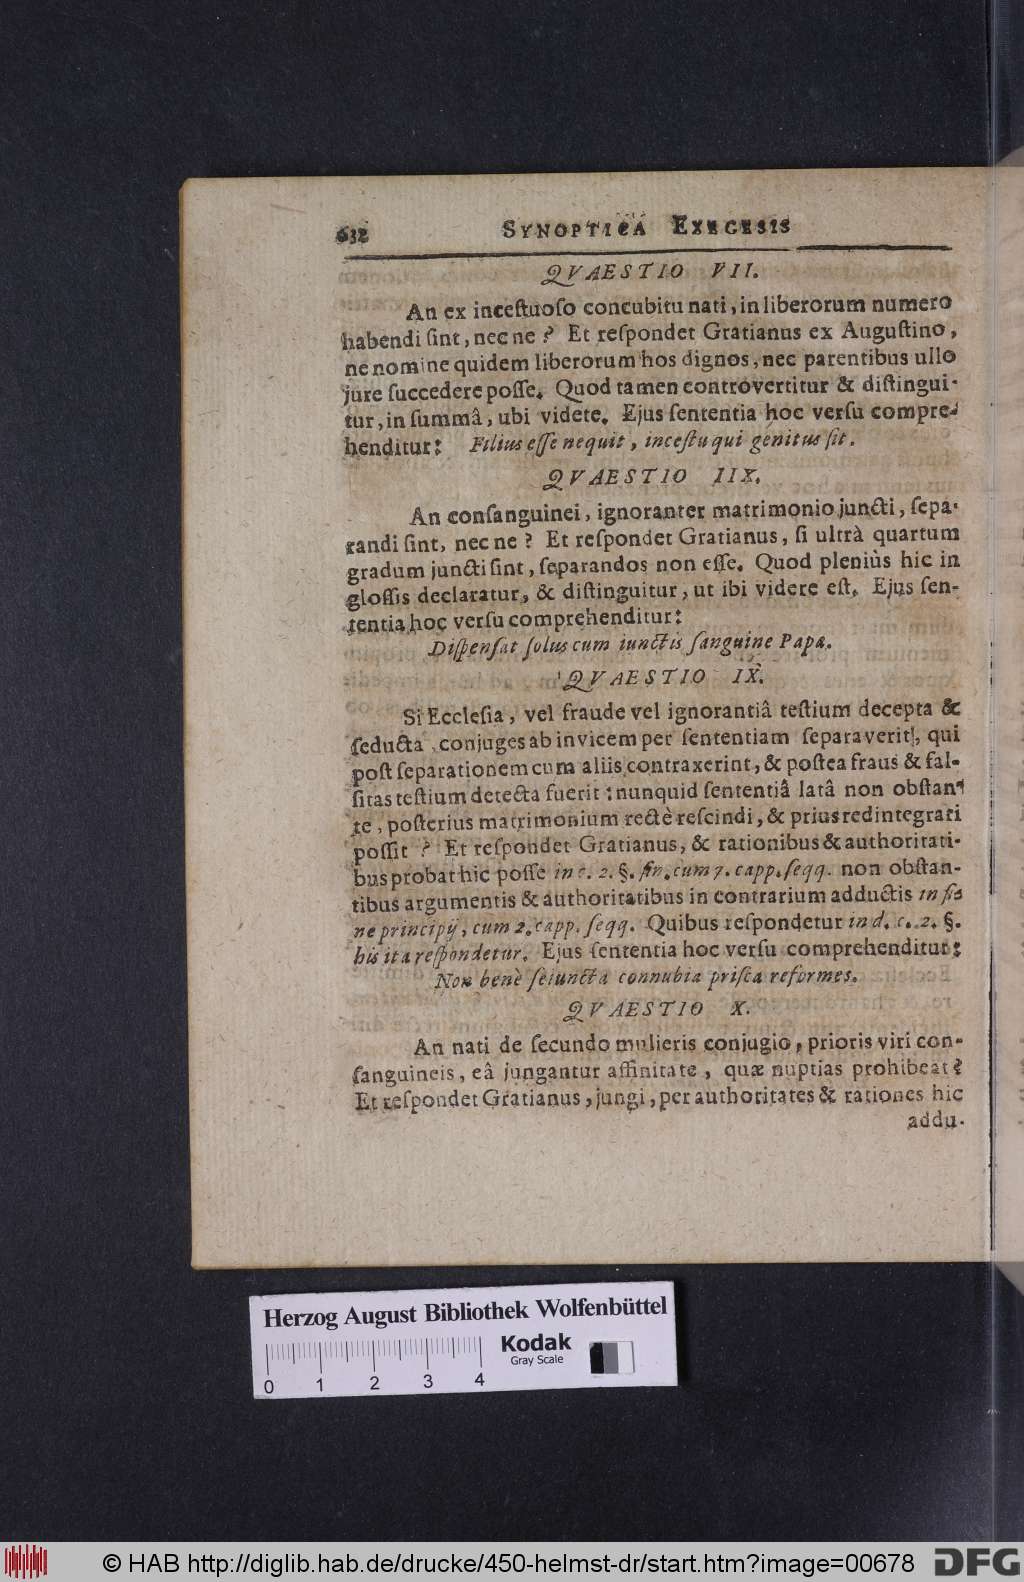 632 SYNOPTICA EXEGESIS
QVAESTIO VII.
An ex inceſtuoſo concubitu nati, in liberorum numero
habendi ſint, nec ne? Et reſpondet Gratianus ex Auguſtino,
ne nomine quidem liberorum hos dignos, nec parentibus ullo
jure ſuccedere poſſe. Quod tamen controvertitur & diſtingui-
tur, in ſummâ, ubi videte. Ejus ſententia hoc verſu compre-
henditur: Filius eſſe nequit, inceſtu qui genitus ſit.
QVAESTIO IIX.
An conſanguinei, ignoranter matrimonio juncti, ſepa-
randi ſint, nec ne? Et reſpondet Gratianus, ſi ultrà quartum
gradum juncti ſint, ſeparandos non eſſe. Quod pleniùs hic in
gloſſis declaratur, & diſtinguitur, ut ibi videre eſt. Ejus ſen-
tentia hoc verſu comprehenditur:
Diſpenſat ſolus cum iunctis ſanguine Papa.
QVAESTIO IX.
Si Eccleſia, vel fraude vel ignorantiâ teſtium decepta &
ſeducta, conjuges ab invicem per ſententiam ſeparaverit, qui
poſt ſeparationem cum aliis contraxerint, & poſtea fraus & fal-
ſitas teſtium detecta fuerit: nunquid ſententiâ latâ non obſtan-
te, poſterius matrimonium rectè reſcindi, & prius redintegrari
poſſit? Et reſpondet Gratianus, & rationibus & authoritati-
bus probat hic poſſe in c. 2. §. fin. cum 7. capp. ſeqq. non obſtan-
tibus argumentis & authoritatibus in contrarium adductis in fi-
ne principij, cum 2. capp. ſeqq. Quibus reſpondetur in d. c. 2. §.
his ita reſpondetur. Ejus ſententia hoc verſu comprehenditur:
Non benè ſeiuncta connubia priſca reformes.
QVAESTIO X.
An nati de ſecundo mulieris conjugio, prioris viri con-
ſanguineis, eâ jungantur affinitate, quæ nuptias prohibeat?
Et reſpondet Gratianus, jungi, per authoritates & rationes hic
addu-
Herzog August Bibliothek Wolfenbüttel
Kodak
Gray Scale
0 1 2 3 4
© HAB http://diglib.hab.de/drucke/450-helmst-dr/start.htm?image=00678 DFG